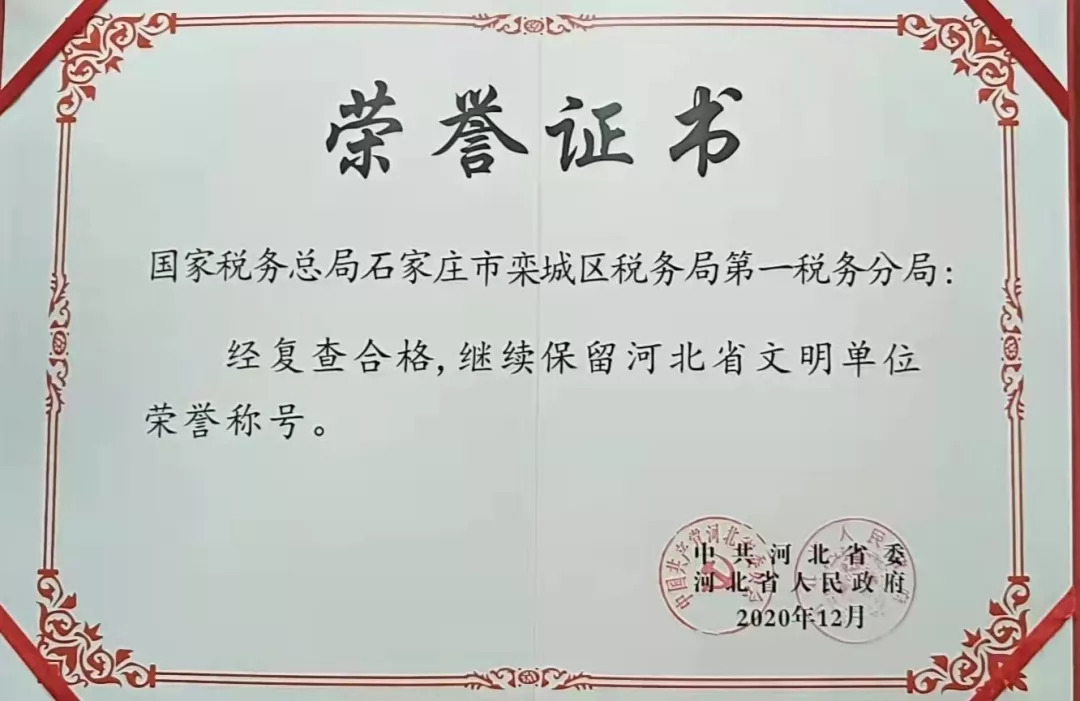 荣誉证书
国家税务总局石家庄市栾城区税务局第一税务分局：
经复查合格，继续保留河北省文明单位
荣誉称号。
中国共产党河北省委员会
中共河北省委
河北省人民政府
2020年12月